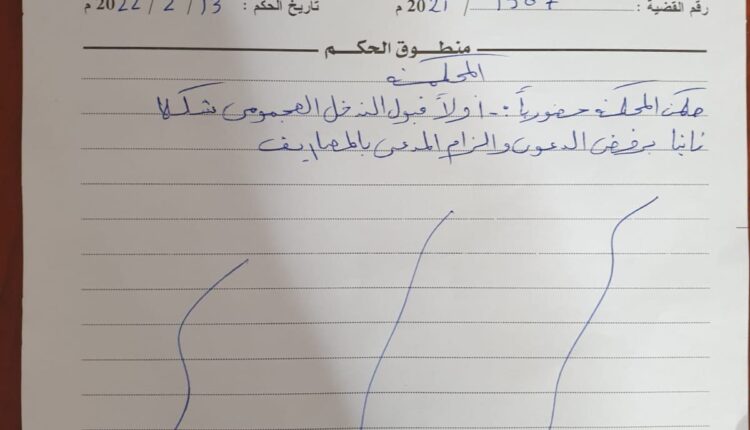 رقم القضية : 1387 / 2021 م تاريخ الحكم : 13 / 2 / 2022 م
منطوق الحكم
المحكمة
حكمت المحكمة حضورياً :- اولاً قبول التدخل الهجومى شكلا
ثانيا برفض الدعوى والزام المدعى بالمصاريف